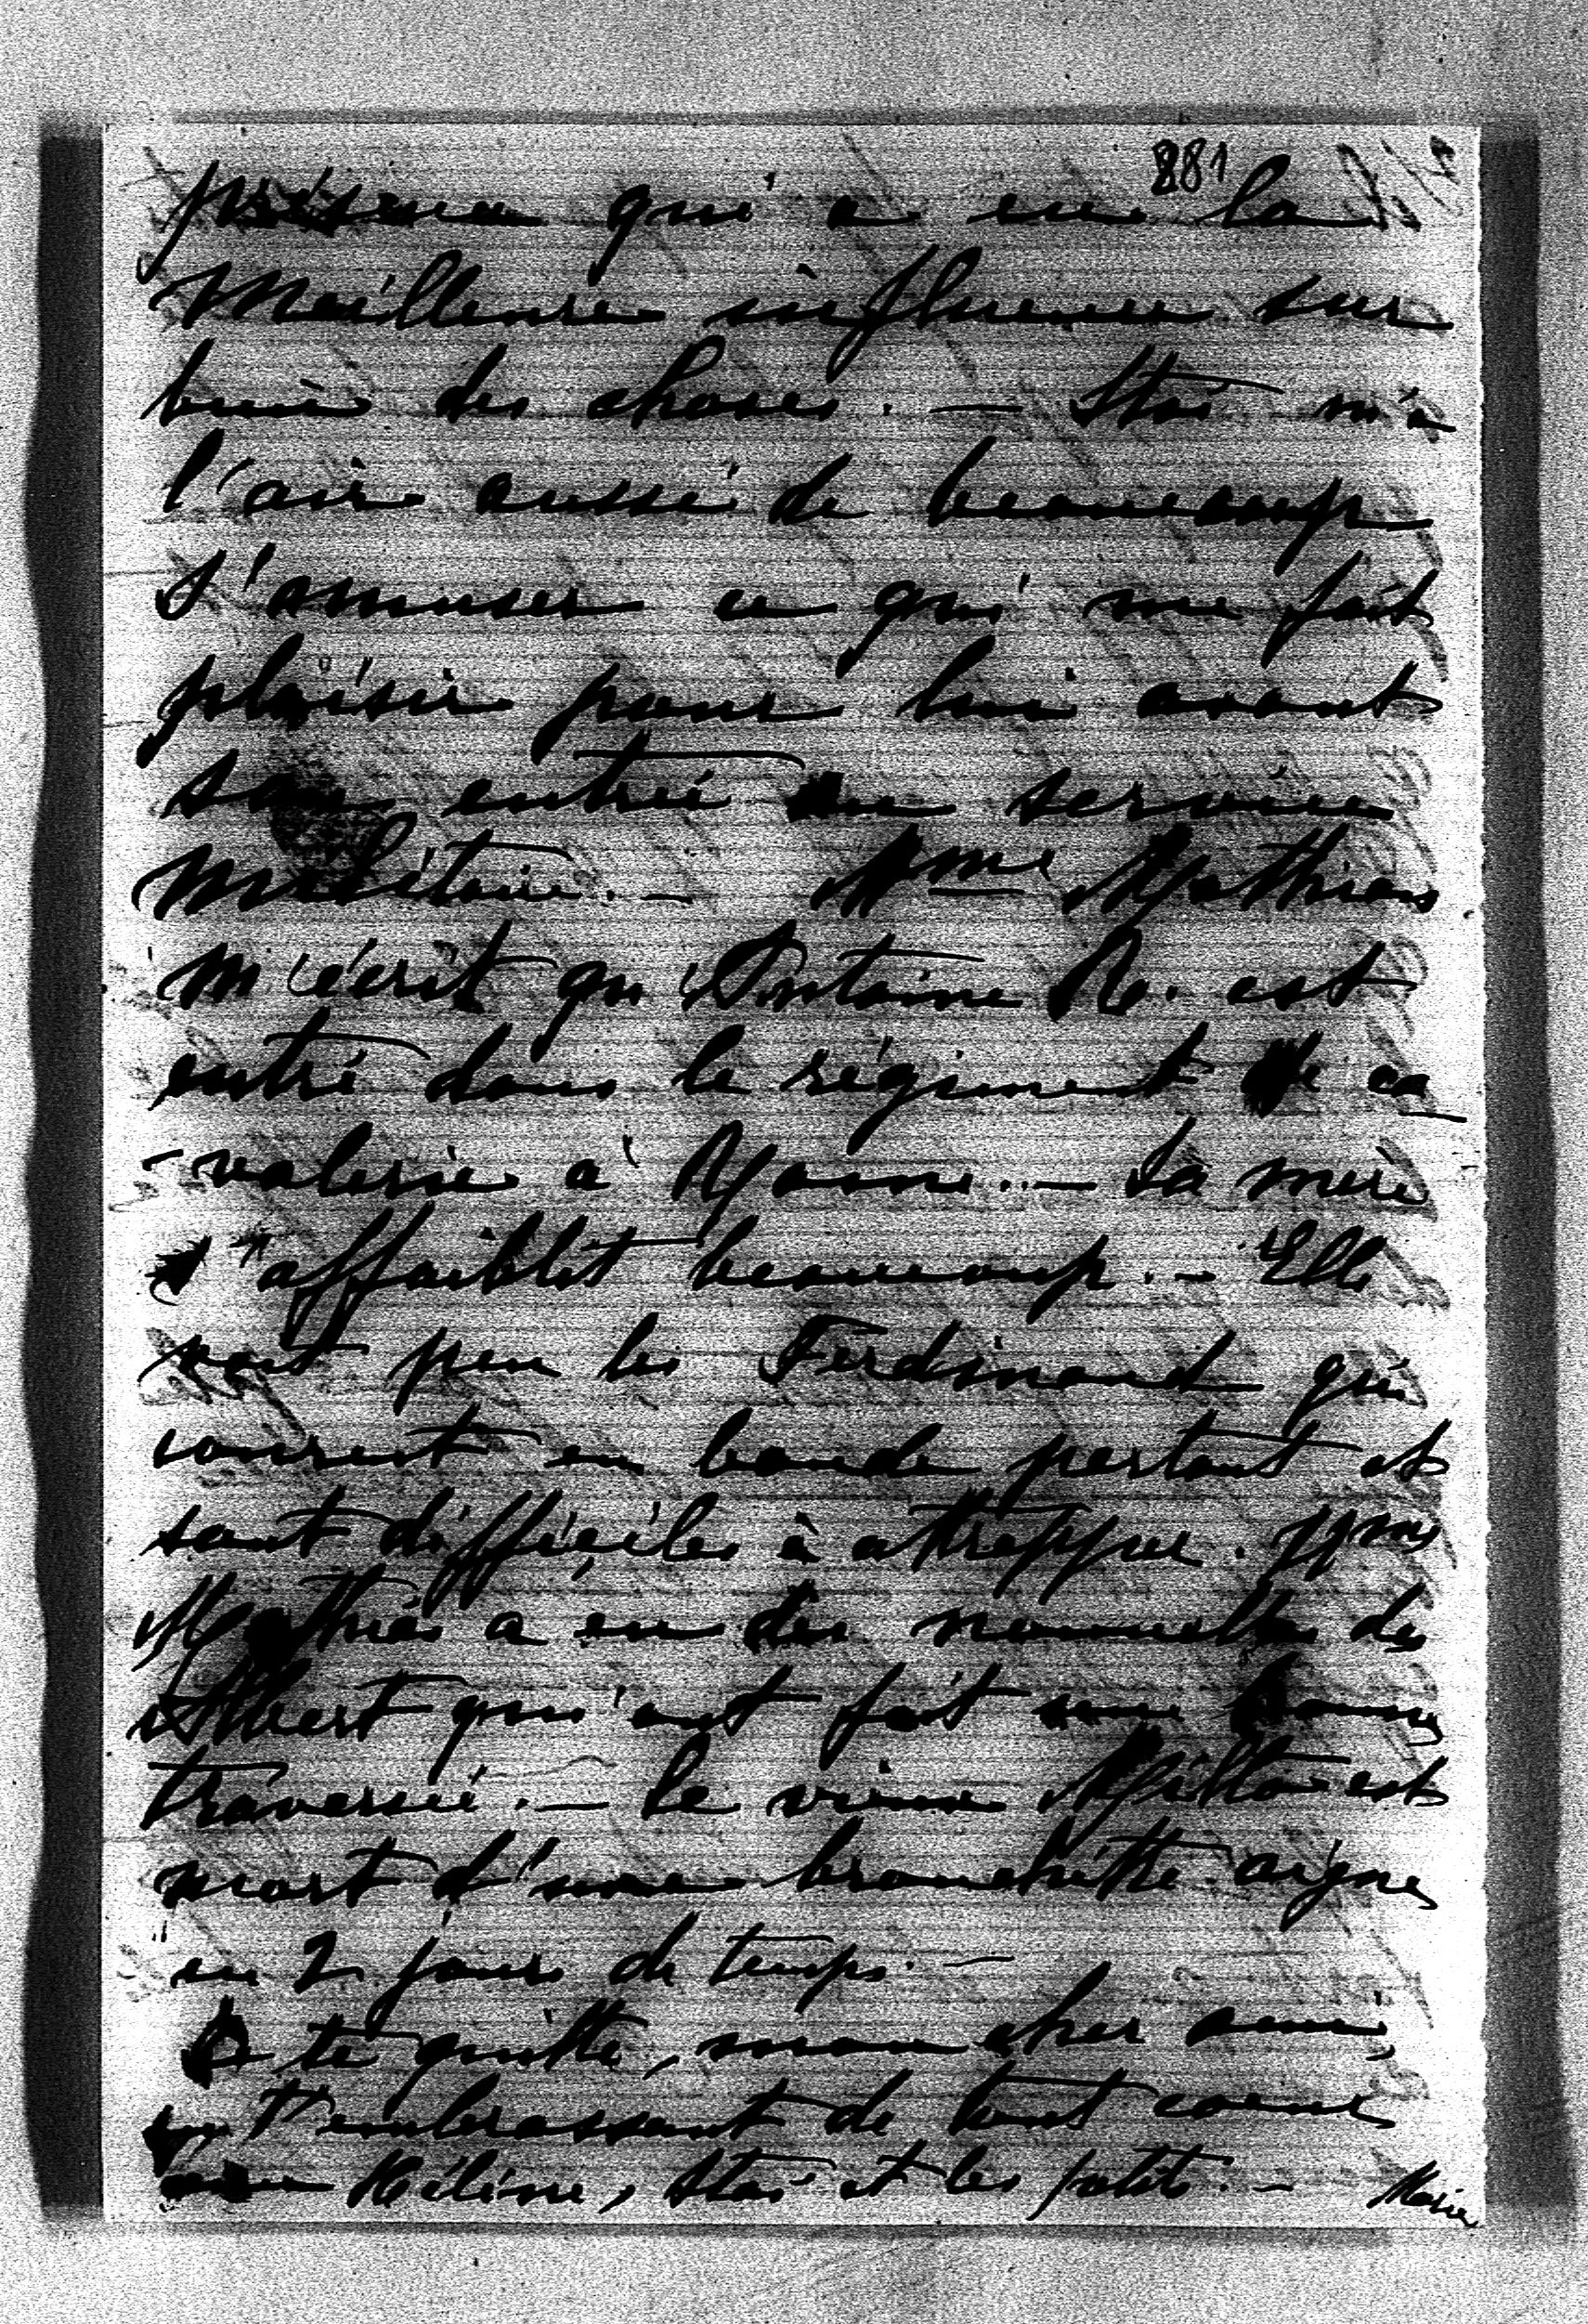 881
présence qui a eu la
meilleure influence sur
bien des choses. — Stas m'a
l'air aussi de beaucoup
s'amuser ce qui me fait
plaisir pour lui avant
son entrée au service
militaire. — Mme Mathieu
m'écrit qu'Antoine R. est
entré dans le régiment de ca
-valerie à . — Sa mère
s'affaiblit beaucoup. — Elle
voit peu les Ferdinand qui
courent en bande partout et
sont difficiles à attrapper. Mme
Mathieu a eu des nouvelles des
Albert qui ont fait une bonne
traversée. — Le vieux est
mort d'une bronchitte aigue
en 2 jours de temps. —
Je te quitte, mon cher ami,
en t'embrassant de tout coeur
avec Hélène, Stas et les petits. — Marie